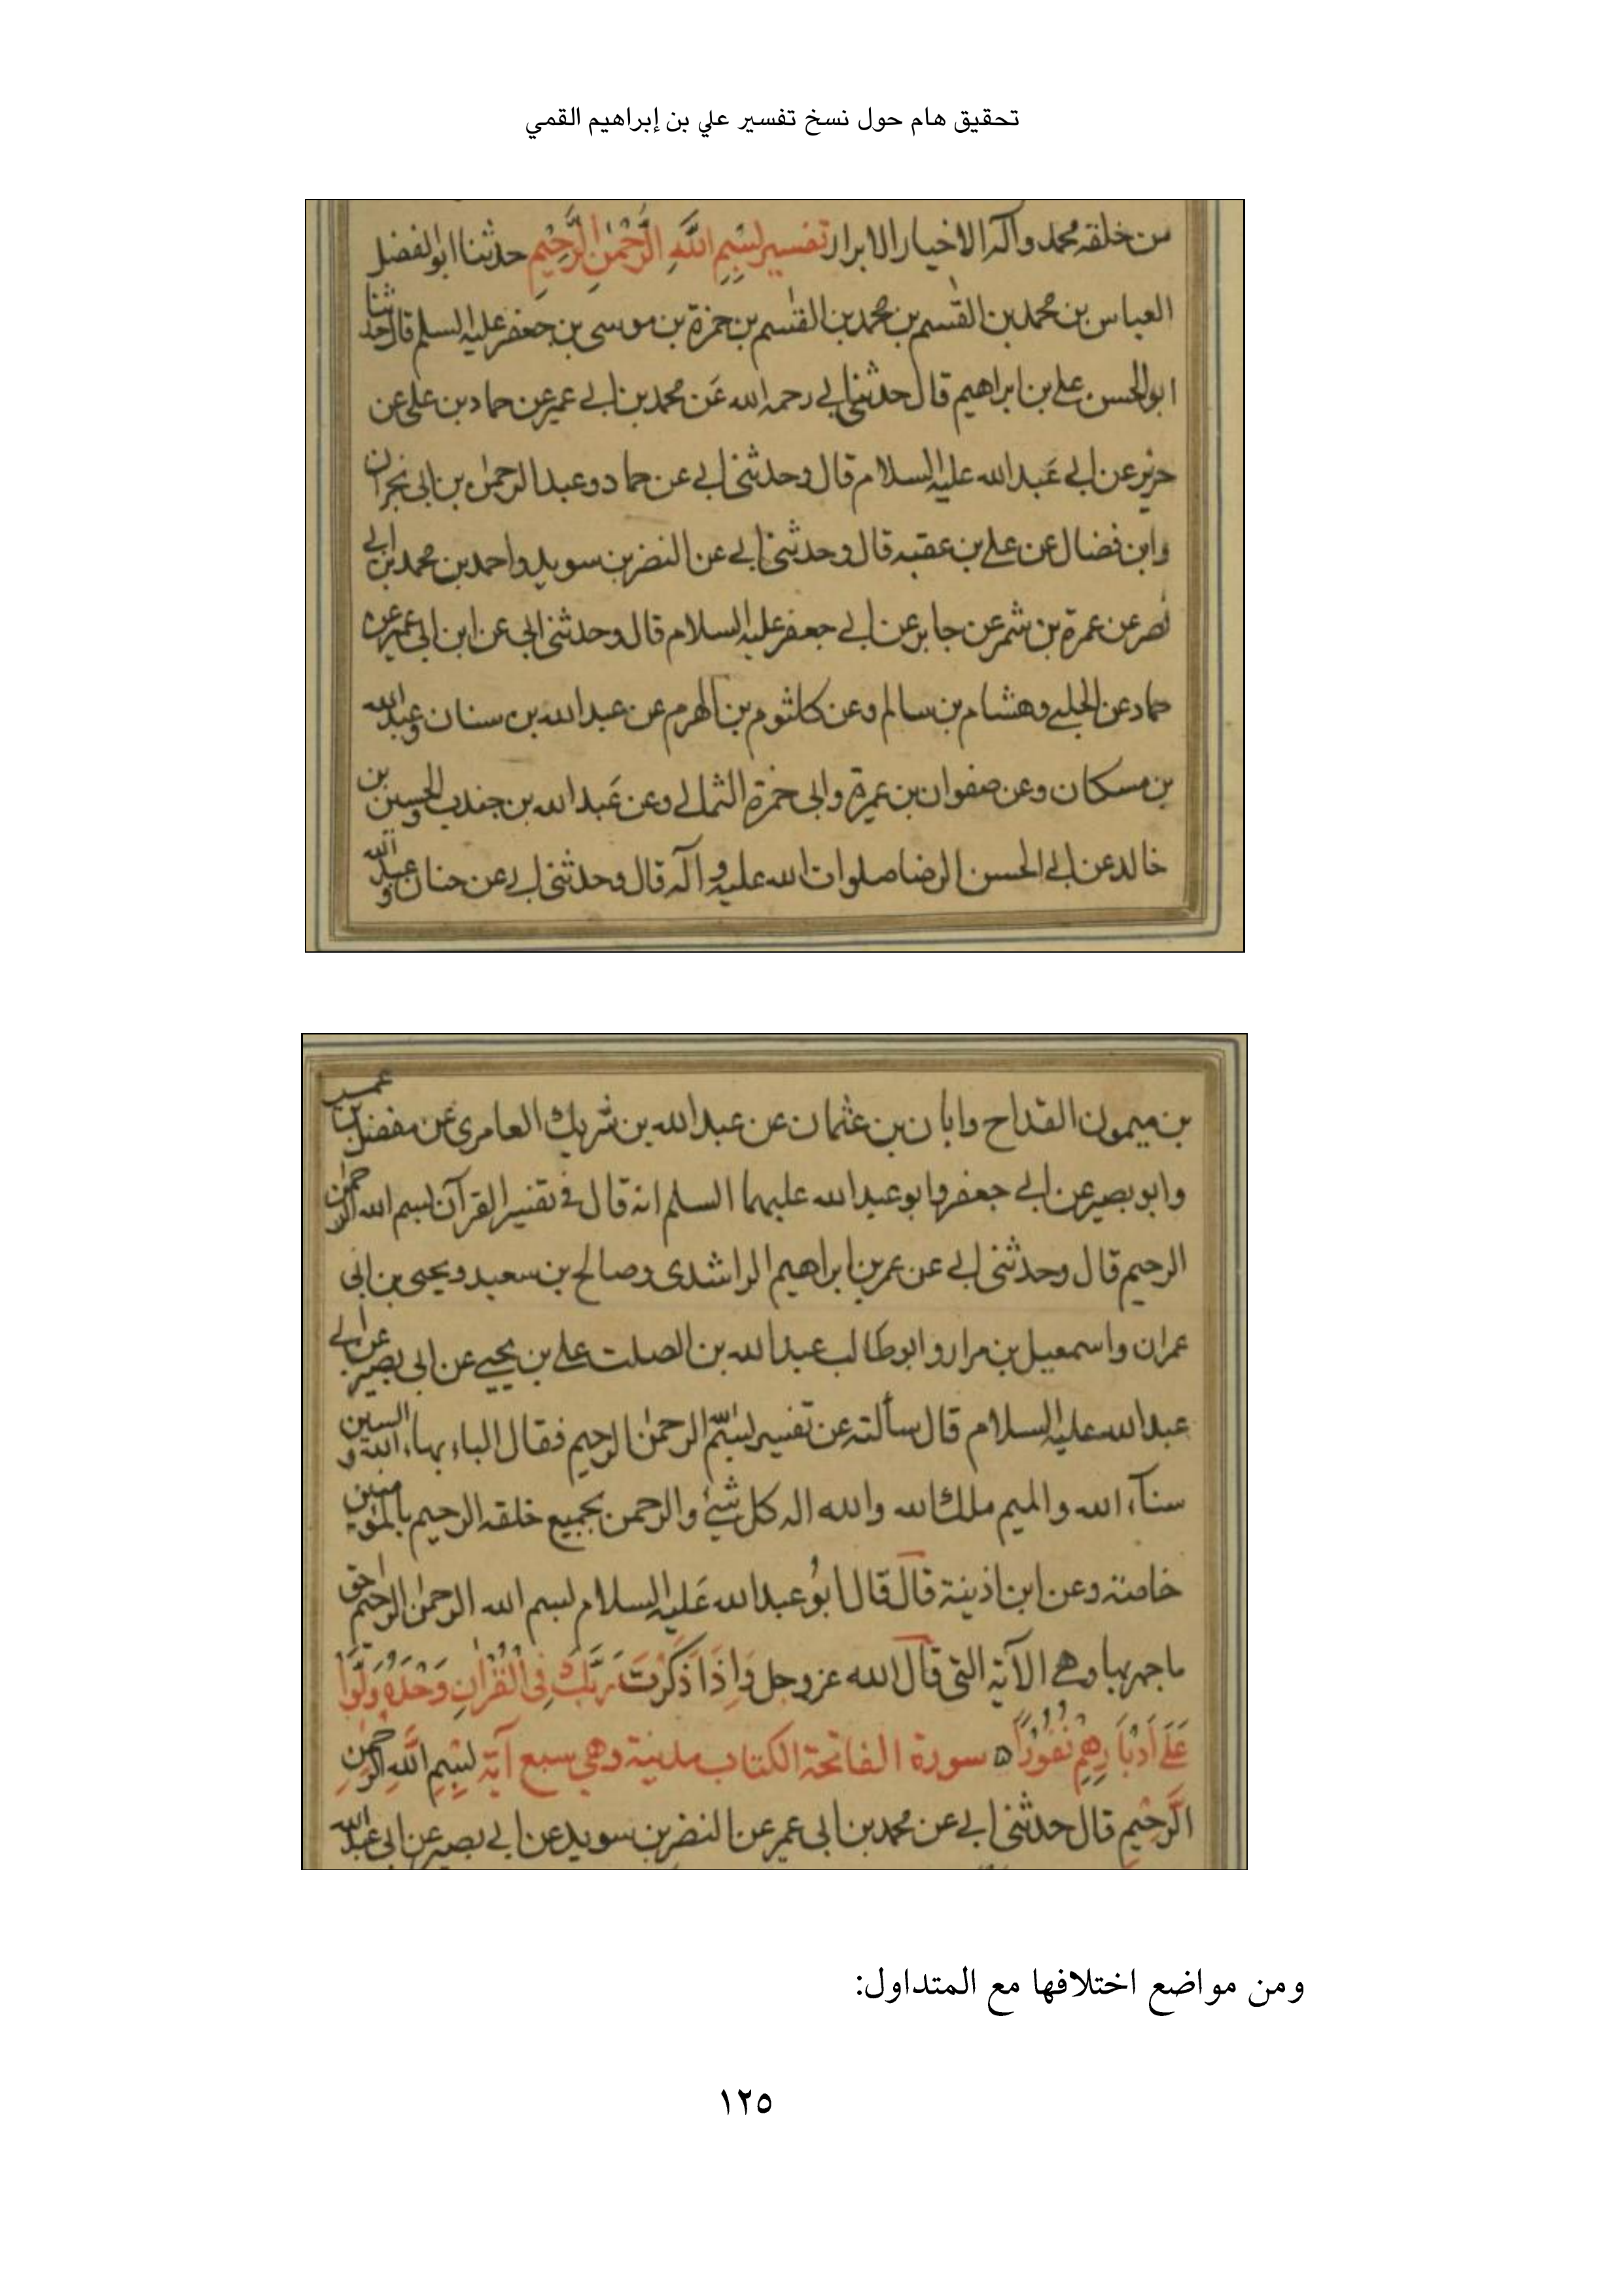 تحقيق هام حول نسخ تفسير علي بن إبراهيم القمي
من خلقه محمد وآله الاخيار الابرار تفسير بسم الله الرحمن الرحيم حدثنا ابو الفضل
العباس بن محمد بن القسم بن محمد بن القسم بن حمزة بن موسى بن جعفر عليه السلم قال حدثنا
ابو الحسن علي بن ابراهيم قال حدثني ابي رحمه الله عن محمد بن ابي عمير عن حماد بن على عن
حريز عن ابي عبد الله عليه السلام قال وحدثني ابي عن حماد وعبد الرحمن بن ابي نجران
وابن فضال عن علي بن عقبه قال وحدثني ابي عن النضر بن سويد واحمد بن محمد بن ابي
نصر عن عمرة بن شمر عن جابر عن ابي جعفر عليه السلام قال وحدثني ابي عن ابن ابي عمير عن
حماد عن الحلبي وهشام بن سالم وعن كلثوم بن الهرم عن عبد الله بن سنان وعبد الله
بن مسكان وعن صفوان بن عميرة وابي حمزة الثمالي وعن عبد الله بن جندب والحسين بن
خالد عن ابي الحسن الرضا صلوات الله عليه وآله قال وحدثني ابي عن حنان وعبد الله
بن ميمون القداح وابان بن عثمان عن عبد الله بن شريك العامري عن مفضل بن عمر
وابو بصير عن ابي جعفر وابو عبد الله عليهما السلم انه قال في تفسير القرآن بسم الله الرحمن
الرحيم قال وحدثني ابي عن عمر بن ابراهيم الراشدى وصالح بن سعيد ويحيى بن ابي
عمران واسمعيل بن مرار وابو طالب عبد الله بن الصلت علي بن يحيى عن ابي بصير عن ابي
عبد الله عليه السلام قال سألته عن تفسير بسم الرحمن الرحيم فقال الباء بهاء الله والسين
سناء الله والميم ملك الله والله اله كل شيء والرحمن بجميع خلقه الرحيم بالمؤمنين
خاصته وعن ابن اذينة قال قال ابو عبد الله عليه السلام بسم الله الرحمن الرحيم احق
ما جهر بها وهي الآية التي قال الله عز وجل وَاِذَا ذَكَرْتَ رَبَّكَ فِى الْقُرْانِ وَحْدَهُ وَلَّوْا
عَلَى أَدْبَارِهِمْ نُفُورًا ه سورة الفاتحة الكتاب مدنية وهي سبع آية بِسْمِ اللَّهِ الرَّحْمٰنِ
الرَّحِيمِ قال حدثني ابي عن محمد بن ابي عمر عن النضر بن سويد عن ابي بصير عن ابي عبد الله
ومن مواضع اختلافها مع المتداول:
١٢٥